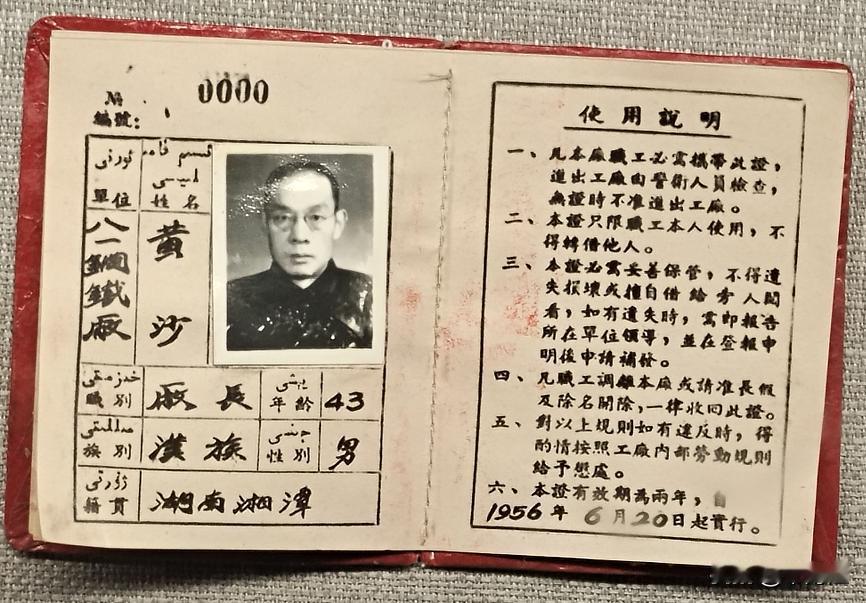 № 0000
編號:
ئورنى
單位
八一鋼鐵廠
姓名
黄沙
職別
廠長
年齡
43
族別
漢族
性別
男
籍貫
湖南湘潭
使用說明
一、凡本廠職工必需攜帶此證，
進出工廠由警衛人員檢查，
無證時不准進出工廠。
二、本證只限職工本人使用，不
得轉借他人。
三、本證必需妥善保管，不得遺
失損壞或擅自借給旁人閱
看，如有遺失時，需即報告
所在單位領導，並在登報申
明後申請補發。
四、凡職工調離本廠或請准長假
及除名開除，一律收回此證。
五、對以上規則如有違反時，得
酌情按照工廠內部勞動規則
給予懲處。
六、本證有效期為兩年，自
1956年6月20日起實行。